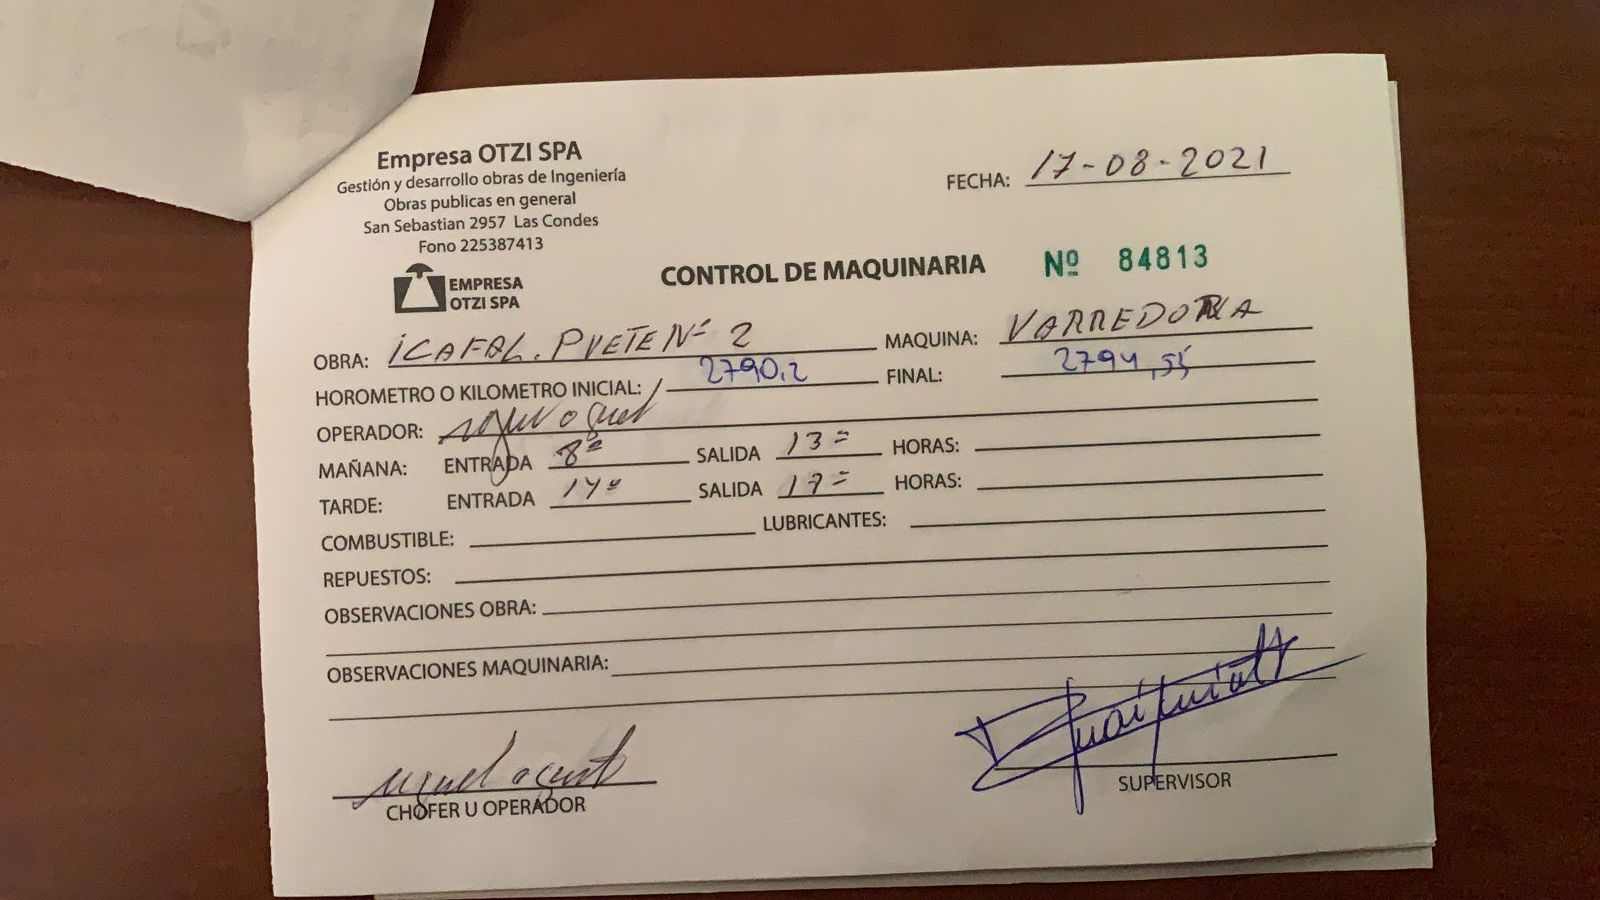 Empresa OTZI SPA
Gestión y desarrollo obras de Ingeniería
Obras publicas en general
San Sebastian 2957 Las Condes
Fono 225387413
EMPRESA
OTZI SPA
FECHA: 17-08-2021
CONTROL DE MAQUINARIA Nº 84813
OBRA: ICAFAL. PUETE Nº 2 MAQUINA: VARREDORA
HOROMETRO O KILOMETRO INICIAL: 2790,2 FINAL: 2794,55
OPERADOR:
MAÑANA: ENTRADA 8º SALIDA 13 HORAS:
TARDE: ENTRADA 14º SALIDA 17 HORAS:
COMBUSTIBLE: LUBRICANTES:
REPUESTOS:
OBSERVACIONES OBRA:
OBSERVACIONES MAQUINARIA:
CHOFER U OPERADOR
SUPERVISOR